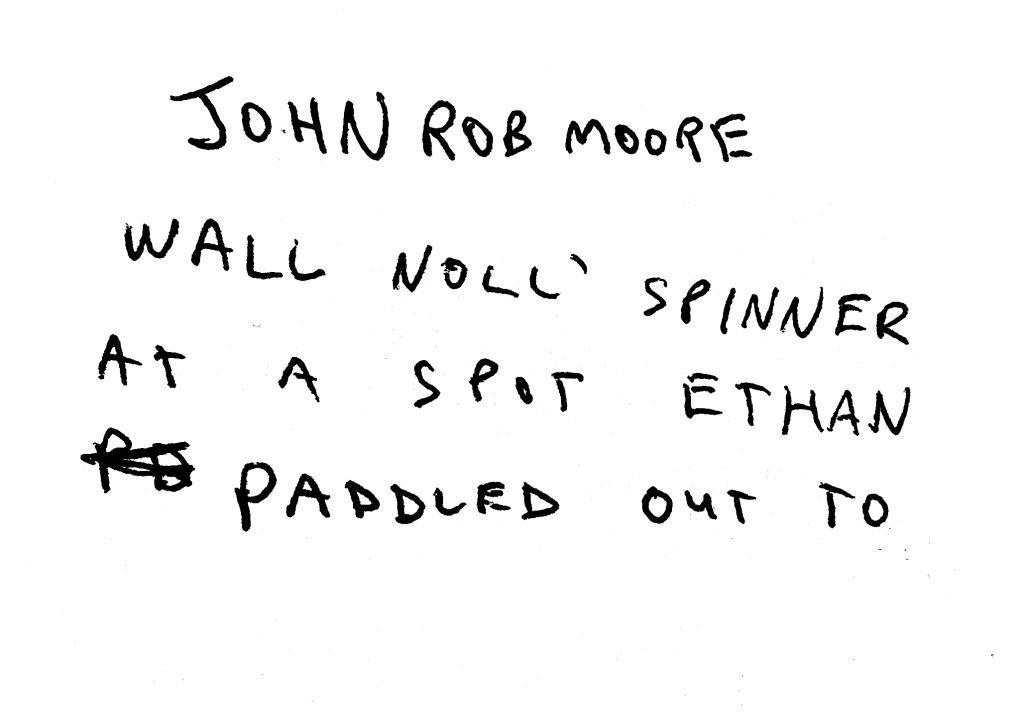 JOHN ROB MOORE
WALL NOLL' SPINNER
AT A SPOT ETHAN
PADDLED OUT TO